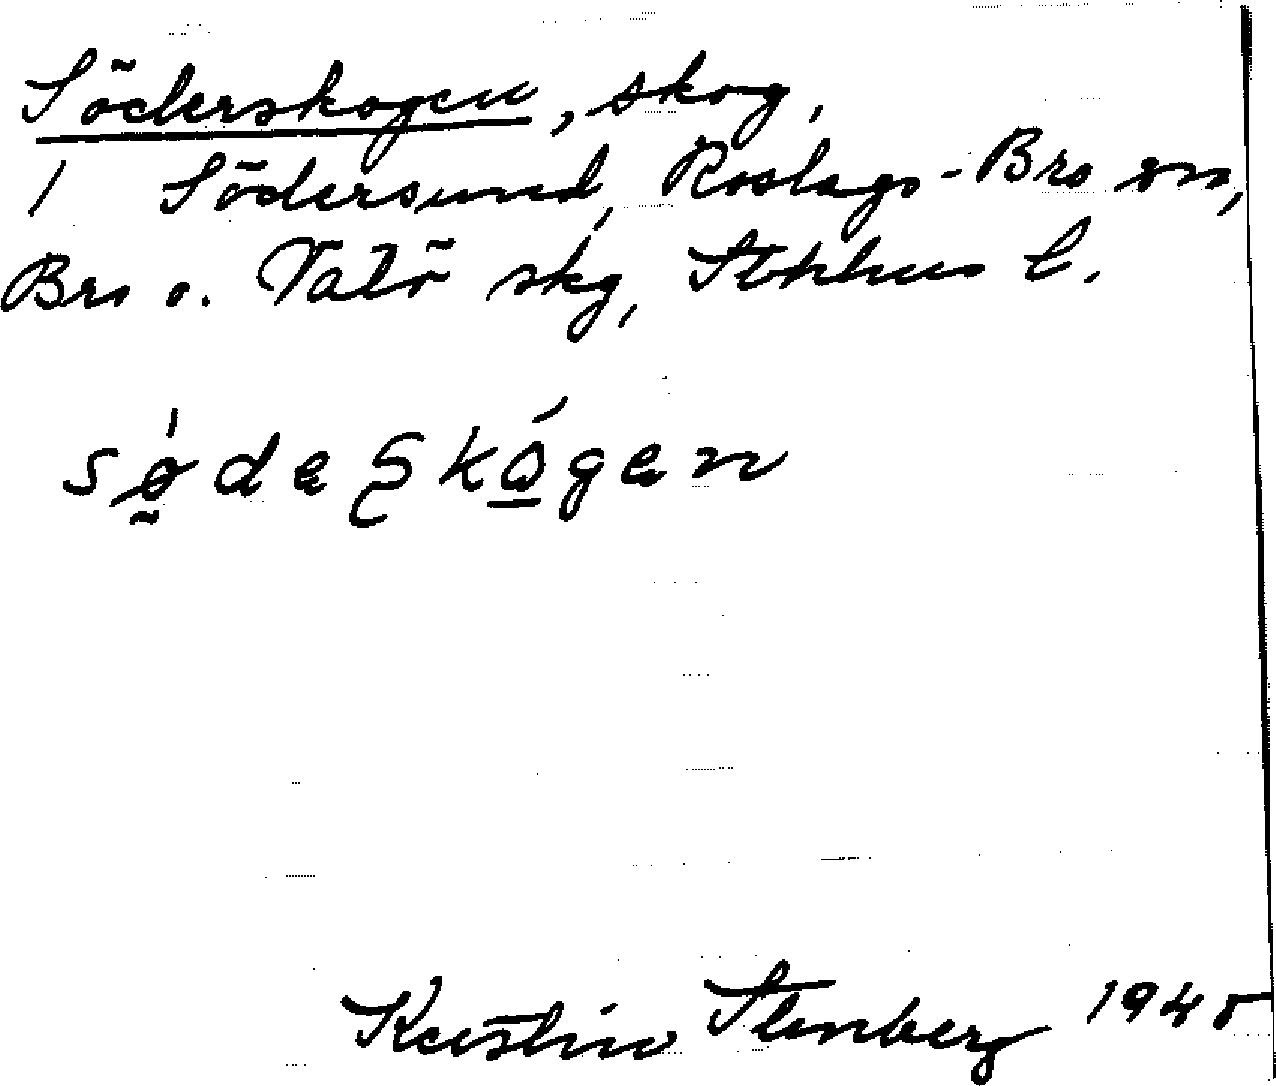 Söderskogen, skog,
1 Södersund, Roslags-Bro sn,
Bro o. Vätö skg, Sthlms l.
sø̰̍deʂkó̱gen
Kerstin Stenberg 1945